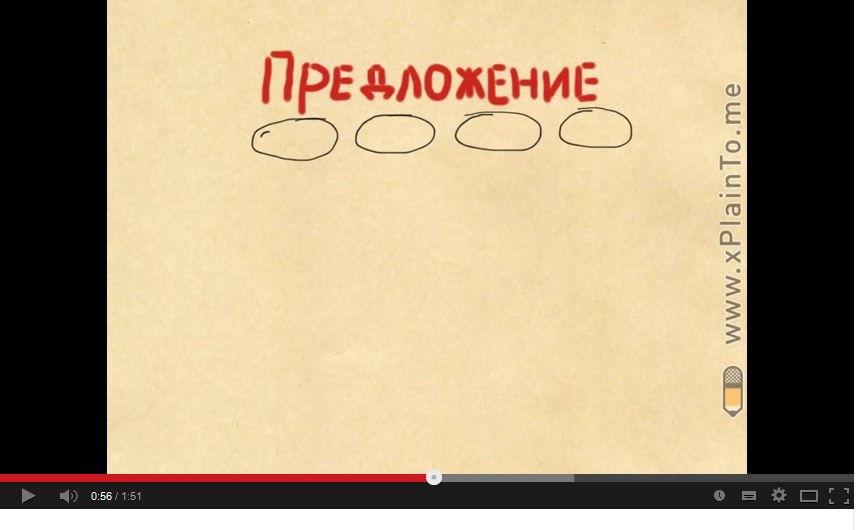 ПРЕДЛОЖЕНИЕ
www.xPlainTo.me
0:56 / 1:51